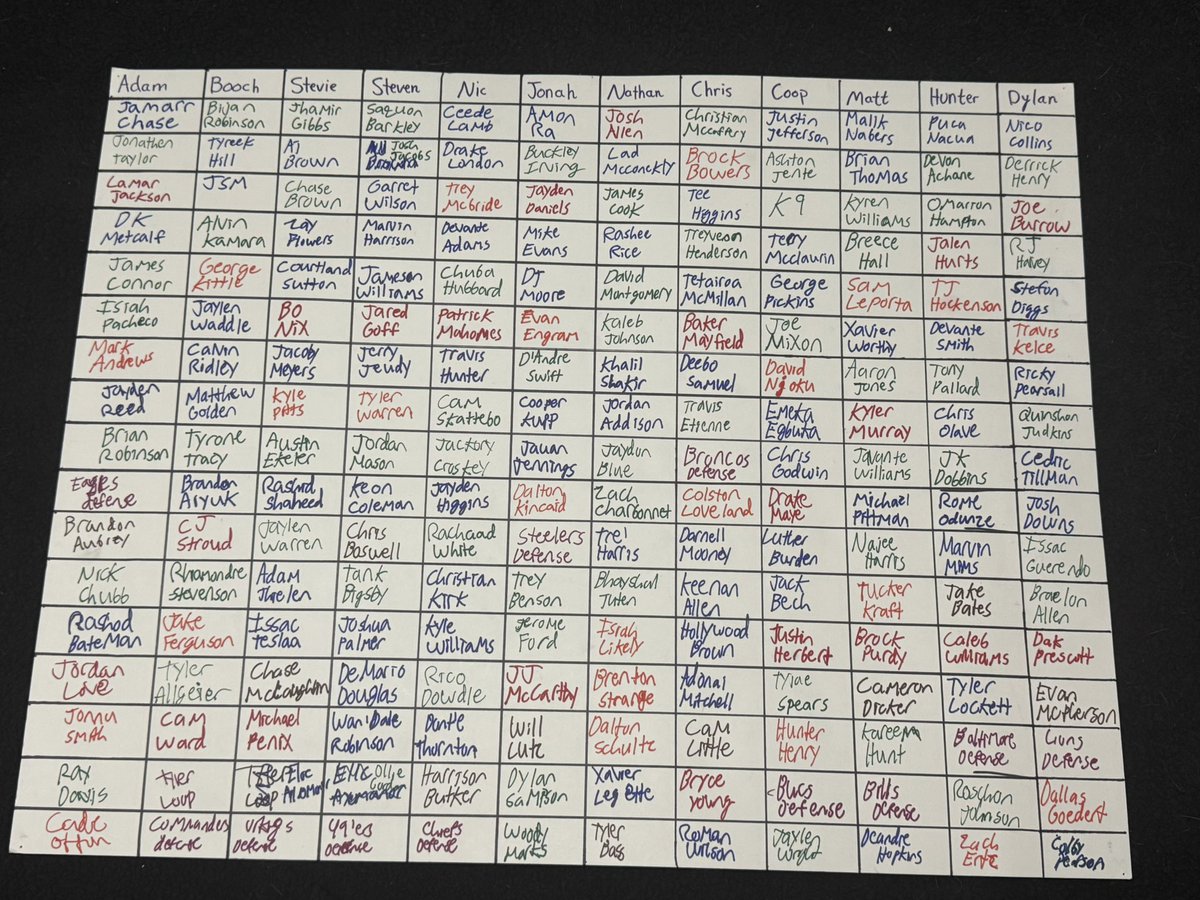 Adam Booch Stevie Steven Nic Jonah Nathan Chris Coop Matt Hunter Dylan
Jamarr Bijan Jhamir Saquon Ceede Amon Josh Christian Justin Malik Puca Nico
Chase Robinson Gibbs Barkley Lamb Ra Allen Mccaffery Jefferson Nabers Nacua Collins
Jonathen Tyreek AJ Josh Drake Buckley Lad Brock Ashton Brian Devon Derrick
Taylor Hill Brown Jacobs London Irving Mcconckly Bowers Jente Thomas Achane Henry
Lamar JSM Chase Garret Trey Jayden James Tee K9 Kyren Omarron Joe
Jackson Brown Wilson Mcbride Daniels Cook Higgins Williams Hampton Burrow
DK Alvin Zay Marvin Devante Mike Rashee Treyveon Terry Breece Jalen RJ
Metcalf Kamara Flowers Harrison Adams Evans Rice Henderson Mcclaurin Hall Hurts Harvey
James George Courtland Jameson Chuba DJ David Tetairoa George Sam TJ Stefon
Connor Kittle Sutton Williams Hubbard Moore Montgomery McMillan Pickins Leporta Hockenson Diggs
Isiah Jaylen Bo Jared Patrick Evan Kaleb Baker Joe Xavier Devante Travis
Pacheco Waddle Nix Goff Mahomes Engram Johnson Mayfield Mixon Worthy Smith Kelce
Mark Calvin Jacoby Jerry Travis D'Andre Khalil Deebo David Aaron Tony Ricky
Andrews Ridley Meyers Jeudy Hunter Swift Shakir Samuel Njoku Jones Pallard Pearsall
Jayden Matthew Kyle Tyler Cam Cooper Jordan Travis Emeka Kyler Chris Quinshon
Reed Golden Pitts Warren Skattebo Kupp Addison Etienne Egbuka Murray Olave Judkins
Brian Tyrone Austin Jordan Jackory Jauan Jaydon Broncos Chris Javante JK Cedric
Robinson Tracy Ekeler Mason Croskey Jennings Blue Defense Godwin Williams Dobbins Tillman
Eagles Brandon Rashid Keon Jayden Dalton Zach Colston Drake Michael Rome Josh
defense Aiyuk Shaheed Coleman Higgins Kincaid Charbonnet Loveland Maye Pittman Odunze Downs
Brandon CJ Jaylen Chris Rachaad Steelers Tre' Darnell Luther Najee Marvin Issac
Aubrey Stroud Warren Boswell White Defense Harris Mooney Burden Harris Mims Guerendo
Nick Rhamondre Adam Tank Christian Trey Bhayshul Keenan Jack Tucker Jake Braelon
Chubb Stevenson Thielen Bigsby Kirk Benson Tuten Allen Bech Kraft Bates Allen
Rashod Jake Issac Joshua Kyle Jerome Isiah Hollywood Justin Brock Caleb Dak
BateMan Ferguson Teslaa Palmer Williams Ford Likely Brown Herbert Purdy Williams Prescott
Jordan Tyler Chase DeMario Rico JJ Brenton Adonai Tyjae Cameron Tyler Evan
Love Allgeier McCloughlin Douglas Dowdle McCarthy Strange Mitchell Spears Dicker Lockett McPherson
Jonnu Cam Michael Wan'Dale Donte Will Dalton Cam Hunter Kareem Baltimore Lions
Smith Ward Penix Robinson Thornton Lutz Schultz Little Henry Hunt Defense Defense
Ray Tyler Elic Ollie Harrison Dylan Xavier Bryce Bucs Bills Roschon Dallas
Davis Loop Butker Sampson Legette Young Defense Defense Johnson Goedert
Cade Commanders Vikings 49'ers Chiefs Woody Tyler Roman Jaylen Deandre Zach
Otton defense Defense Defense Defense Marks Bass Wilson Wright Hopkins Ertz